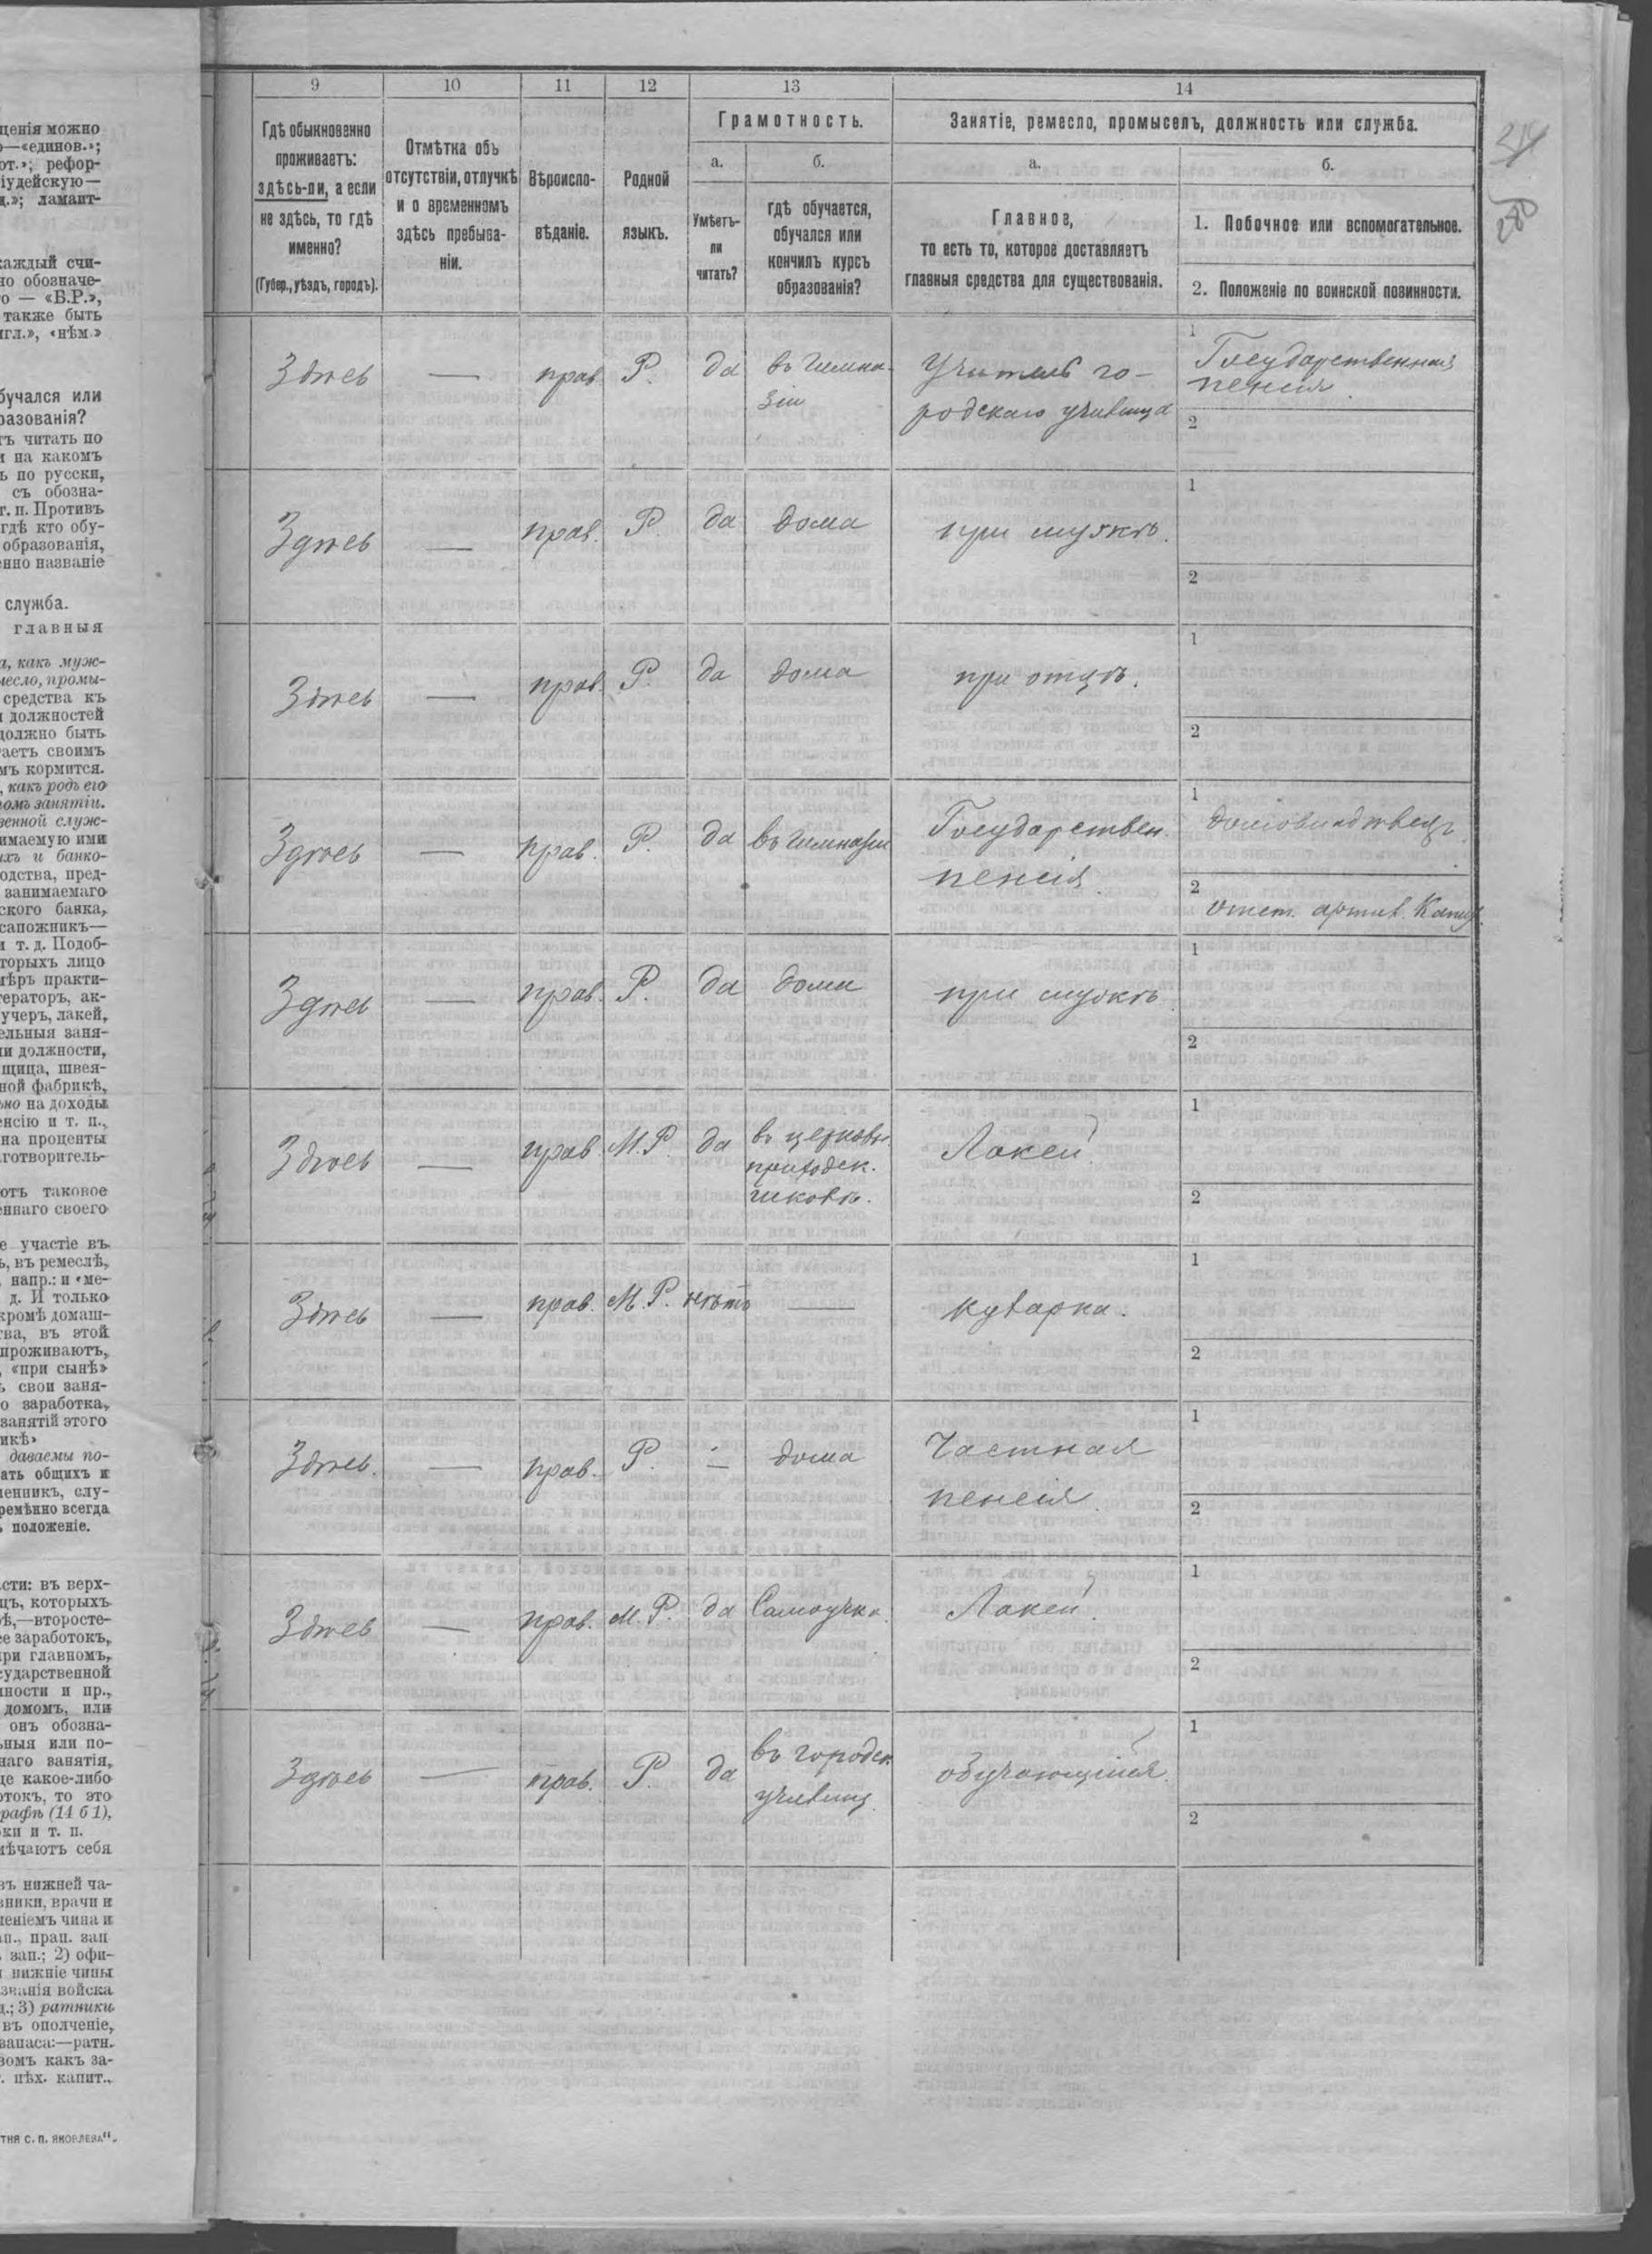 9 10 11 12 13 14
Гдѣ обыкновенно
проживаетъ:
здѣсь-ли, а если
не здѣсь, то гдѣ
именно?
(Губер., уѣздъ, городъ).
Отмѣтка объ
отсутствіи, отлучкѣ
и о временномъ
здѣсь пребыва-
ніи.
Вѣроиспо-
вѣданіе.
Родной
языкъ.
Грамотность.
а.
Умѣетъ-
ли
читать?
б.
гдѣ обучается,
обучался или
кончилъ курсъ
образованія?
Занятіе, ремесло, промыселъ, должность или служба.
а.
Главное,
то есть то, которое доставляетъ
главныя средства для существованія.
б.
1. Побочное или вспомогательное.
2. Положеніе по воинской повинности.
280
Здѣсь — прав. Р. да въ гимна-
зіи
Учитель го-
родскаго училища
1
Государственная
пенсія
2
Здѣсь — прав. Р. да дома при мужѣ.
1
2
Здѣсь — прав. Р. да дома при отцѣ.
1
2
Здѣсь — прав. Р. да въ гимназіи Государствен.
пенсія
1
домовладѣлец
2
отст. артил. Капит.
Здѣсь — прав. Р. да дома при мужѣ
1
2
Здѣсь — прав. М.Р. да въ церковн.
приходск.
школѣ.
Лакей
1
2
Здѣсь — прав. М.Р. нѣтъ — кухарка.
1
2
Здѣсь. — прав. Р. — дома Частная
пенсія
1
2
Здѣсь — прав. М.Р. да Самоучка. Лакей.
1
2
Здѣсь — прав. Р. да въ городск.
училищ.
обучающійся
1
2
ценія можно
о—«единов.»;
от.»; рефор-
іудейскую—
д.»; ламаит-
каждый счи-
но обозначе-
о — «Б.Р.»,
также быть
нгл.», «нѣм.»
бучался или
разованія?
тъ читать по
и на какомъ
ь по русски,
съ обозна-
т. п. Противъ
гдѣ кто обу-
образованія,
нно названіе
служба.
главныя
а, какъ муж-
месло, промы-
средства къ
и должностей
должно быть
аетъ своимъ
мъ кормится.
, какъ родъ его
омъ занятіи.
венной служ-
имаемую ими
ихъ и банко-
одства, пред-
занимаемаго
ского банка,
сапожникъ—
и т. д. Подоб-
торыхъ лицо
мѣръ практи-
тераторъ, ак-
учеръ, лакей,
ельныя заня-
ли должности,
щица, швея-
ной фабрикѣ,
ьно на доходы
енсію и т. п.,
на проценты
аготворитель-
отъ таковое
еннаго своего
е участіе въ
ь, въ ремеслѣ,
, напр.: и «ме-
д. И только
кромѣ домаш-
тва, въ этой
проживаютъ,
, «при сынѣ»
ь свои заня-
о заработка,
занятій этого
икѣ»
даваемы по-
ать общихъ и
ленникъ, слу-
ремѣнно всегда
ь положеніе.
сти: въ верх-
цъ, которыхъ
ѣ,—второсте-
ее заработокъ,
ри главномъ,
сударственной
нности и пр.,
домомъ, или
онъ обозна-
ьныя или по-
наго занятія,
це какое-либо
отокъ, то это
рафѣ (14 б 1),
ки и т. п.
мѣчаютъ себя
въ нижней ча-
вники, врачи и
ленiемъ чина и
ап., прап. зап
зап.; 2) офи-
и нижніе чины
званія войска
д.; 3) ратники
въ ополченіе,
запаса:—ратн.
зомъ какъ за-
. пѣх. капит.,
ТНЯ С. П. ЯКОВЛЕВА".